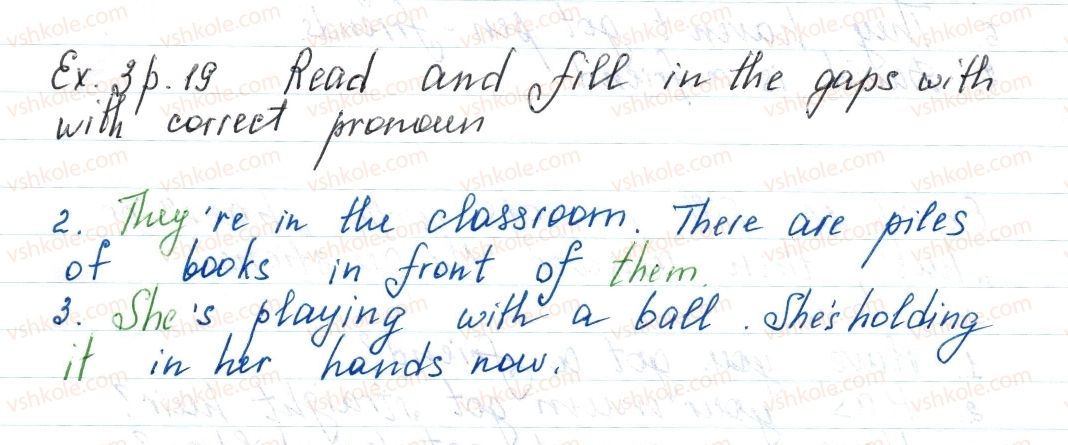 Ex. 3 p. 19 Read and fill in the gaps with
with correct pronoun
2. They're in the classroom. There are piles
of books in front of them.
3. She's playing with a ball. She's holding
it in her hands now.